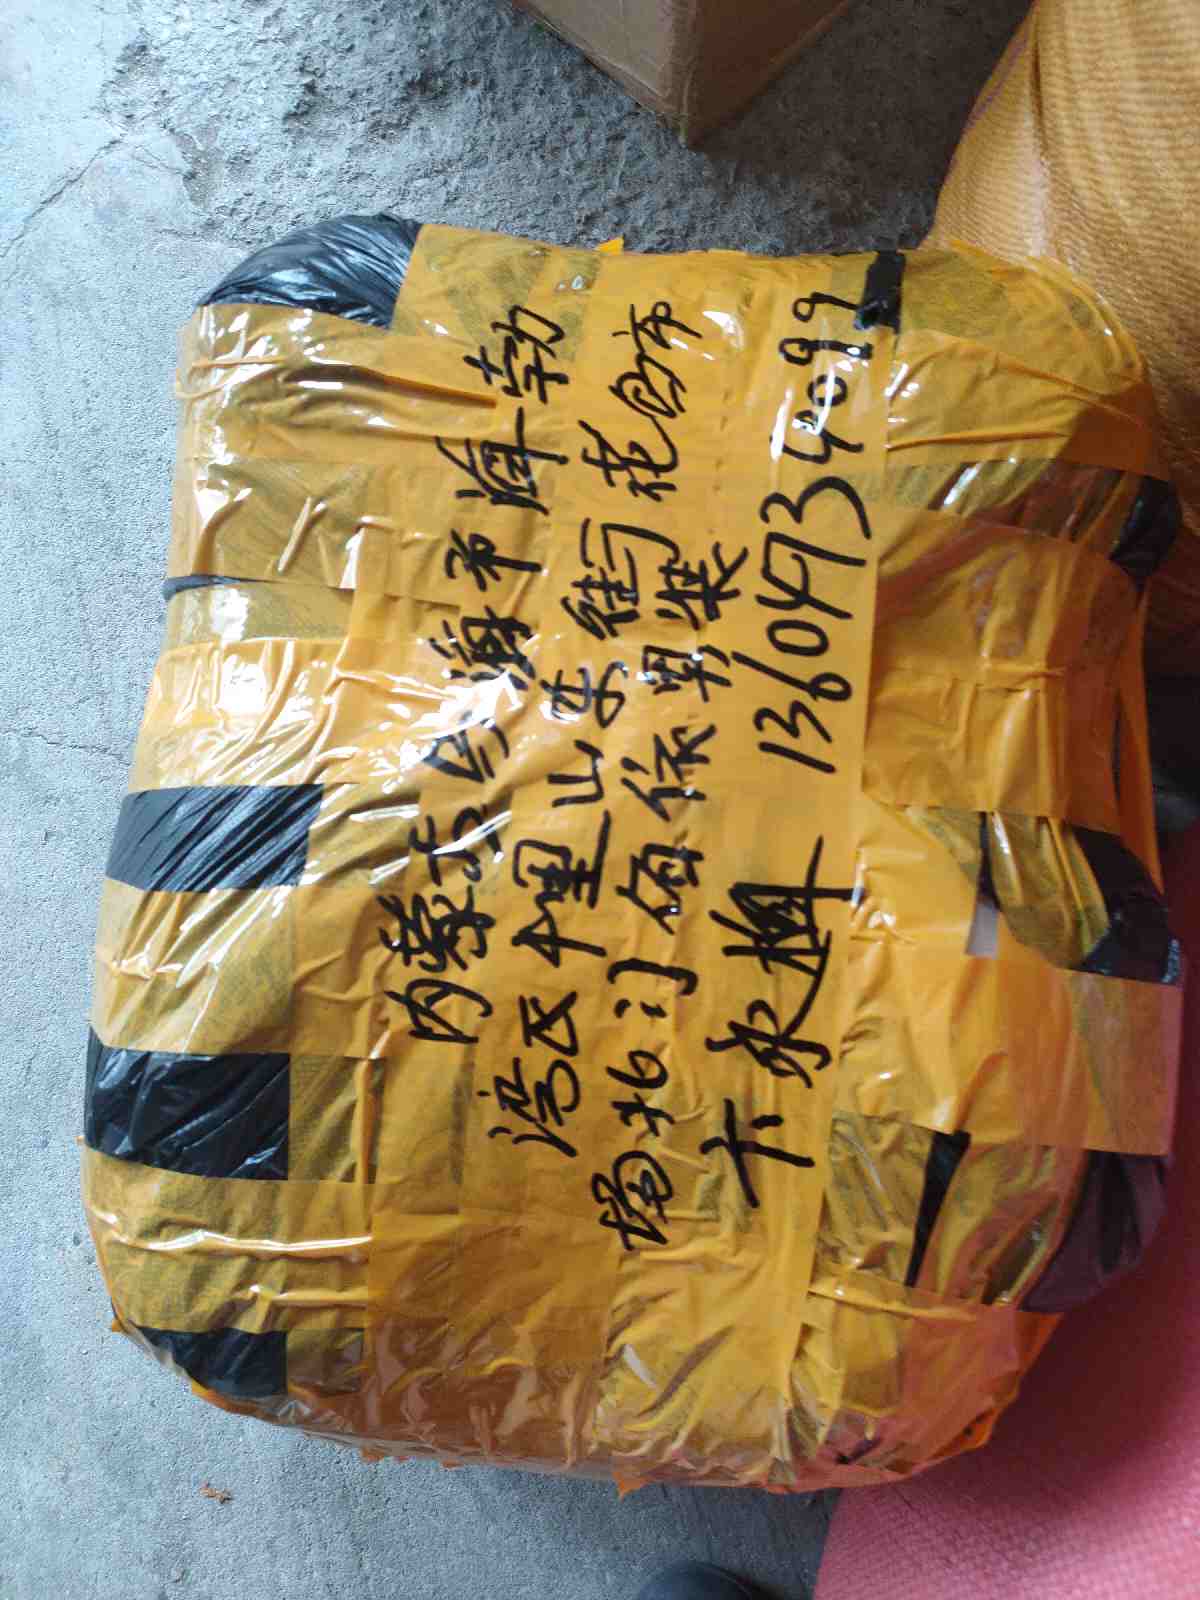 内蒙乌海市海勃
湾区千里山东街花园市
场北门佰依男装
卞永梅 13604734099